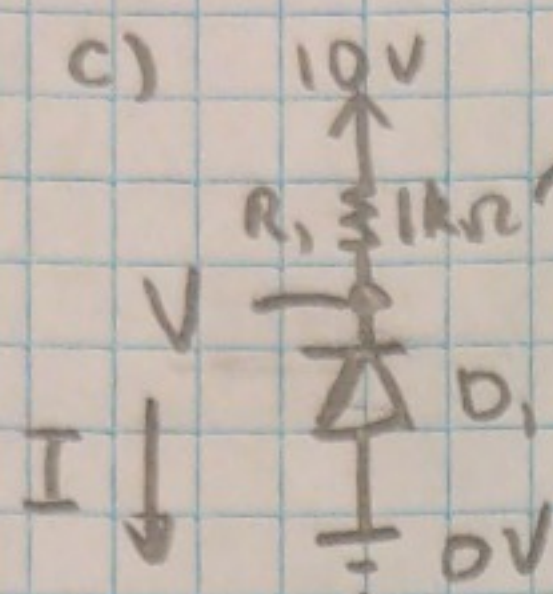 C)
10V
R1 1kΩ
V
D1
I
0V